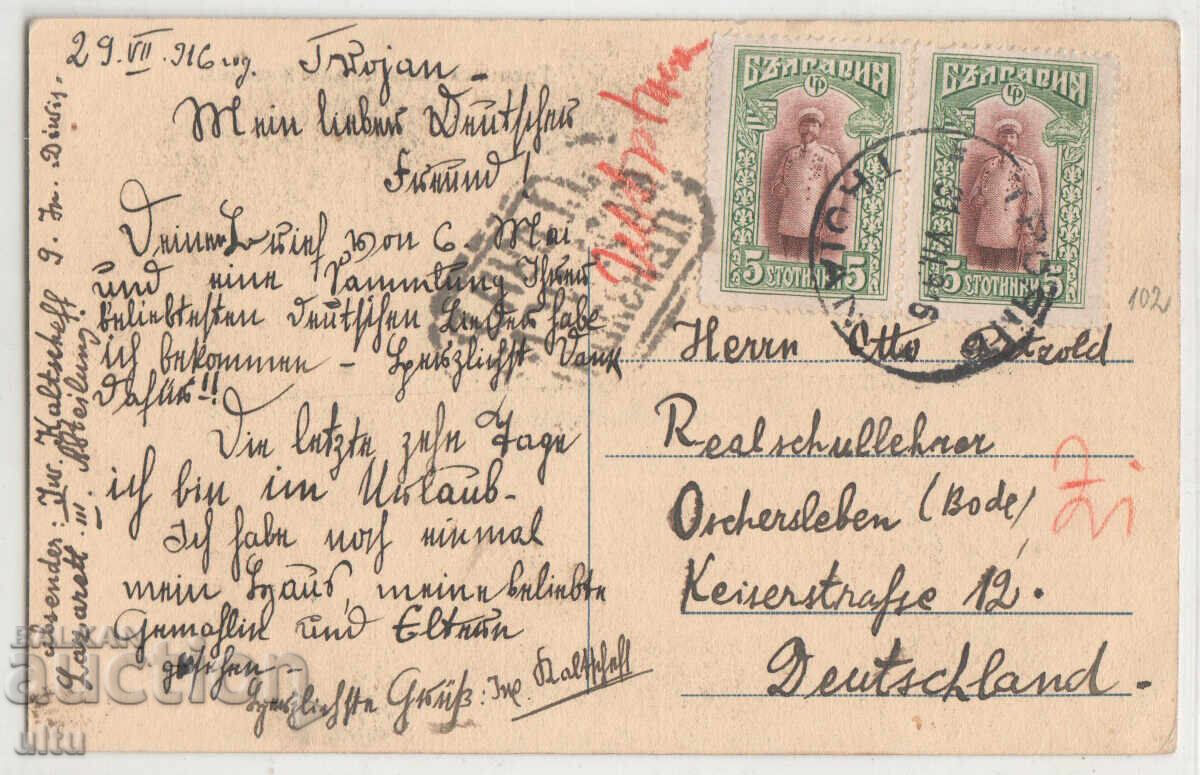 29. VII. 916 год. Trojan -
Mein lieber Deutscher
Freund!
Deiner Brief von 6. Mai
und eine Sammlung Ihrer
beliebtesten deutschen Lieder habe
ich bekommen - Herzlichst Dank
dafür!!
Die letzte zehn Tage
ich bin im Urlaub -
Ich habe noch einmal
mein Haus, meine beliebte
Gemahlin und Eltern
gesehen -
Herzlichste Grüß: Inr. Kaltscheff
Absender: Inr. Kaltscheff 9. In. Divis.
Lazarett III. Abteilung.
БЪЛГАРИЯ
5 СТОТИНКИ 5
БЪЛГАРИЯ
5 СТОТИНКИ 5
TROIAN
31 VII 1916
Herrn Otto Petzold
Realschullehrer
Oschersleben (Bode)
Keiserstraße 12.
Deutschland -
102
BALKAN
auction
ultu